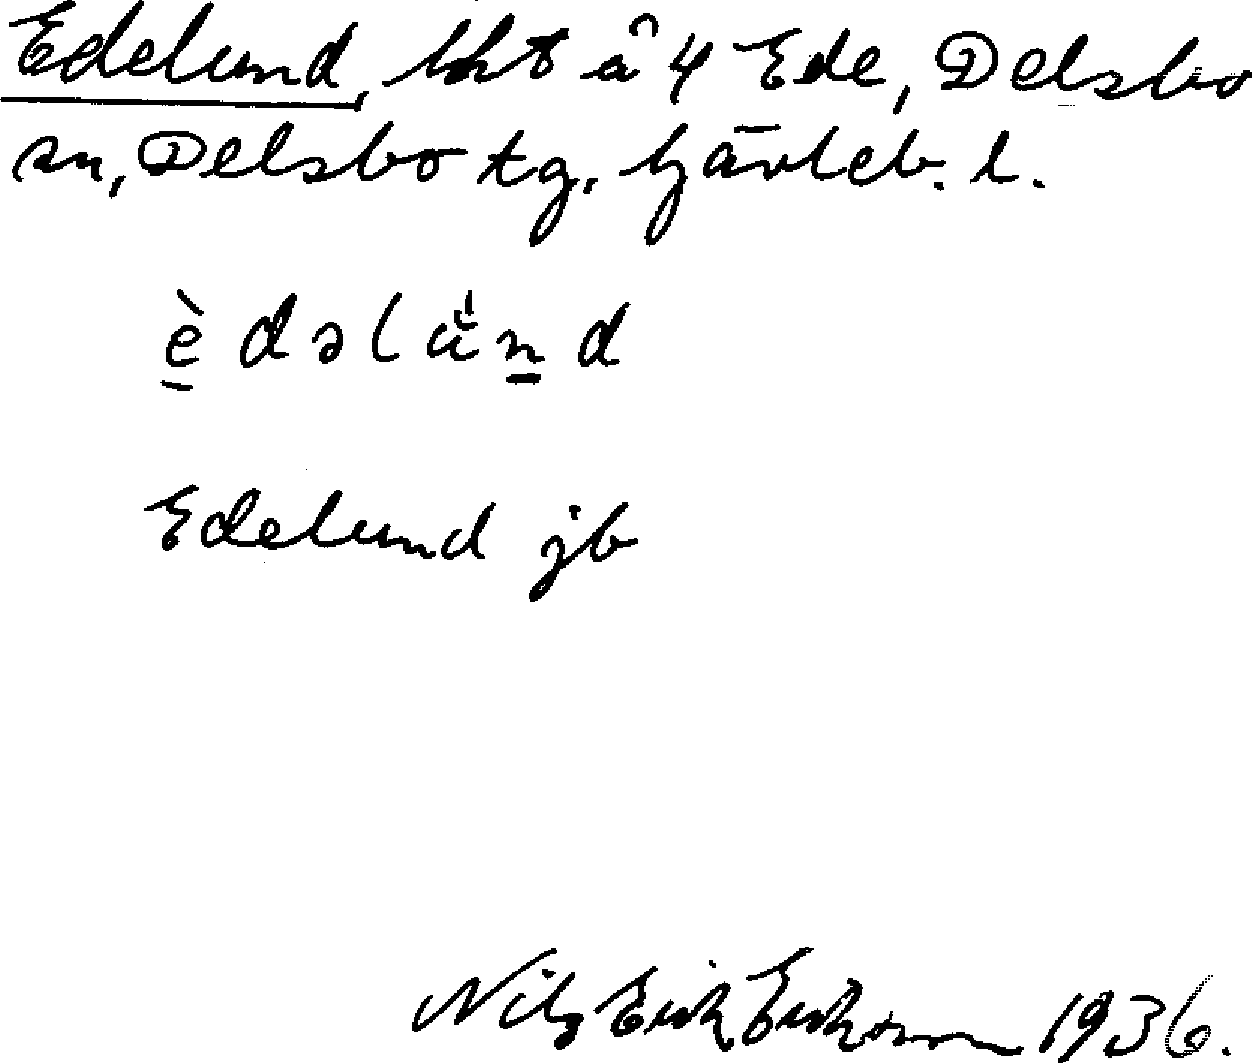 Edelund, lht å 4 Ede, Delsbo
sn, Delsbo tg, Gävleb. l.
è̱dəlùṉd
Edelund jb
Nils Erik Eriksson 1936.